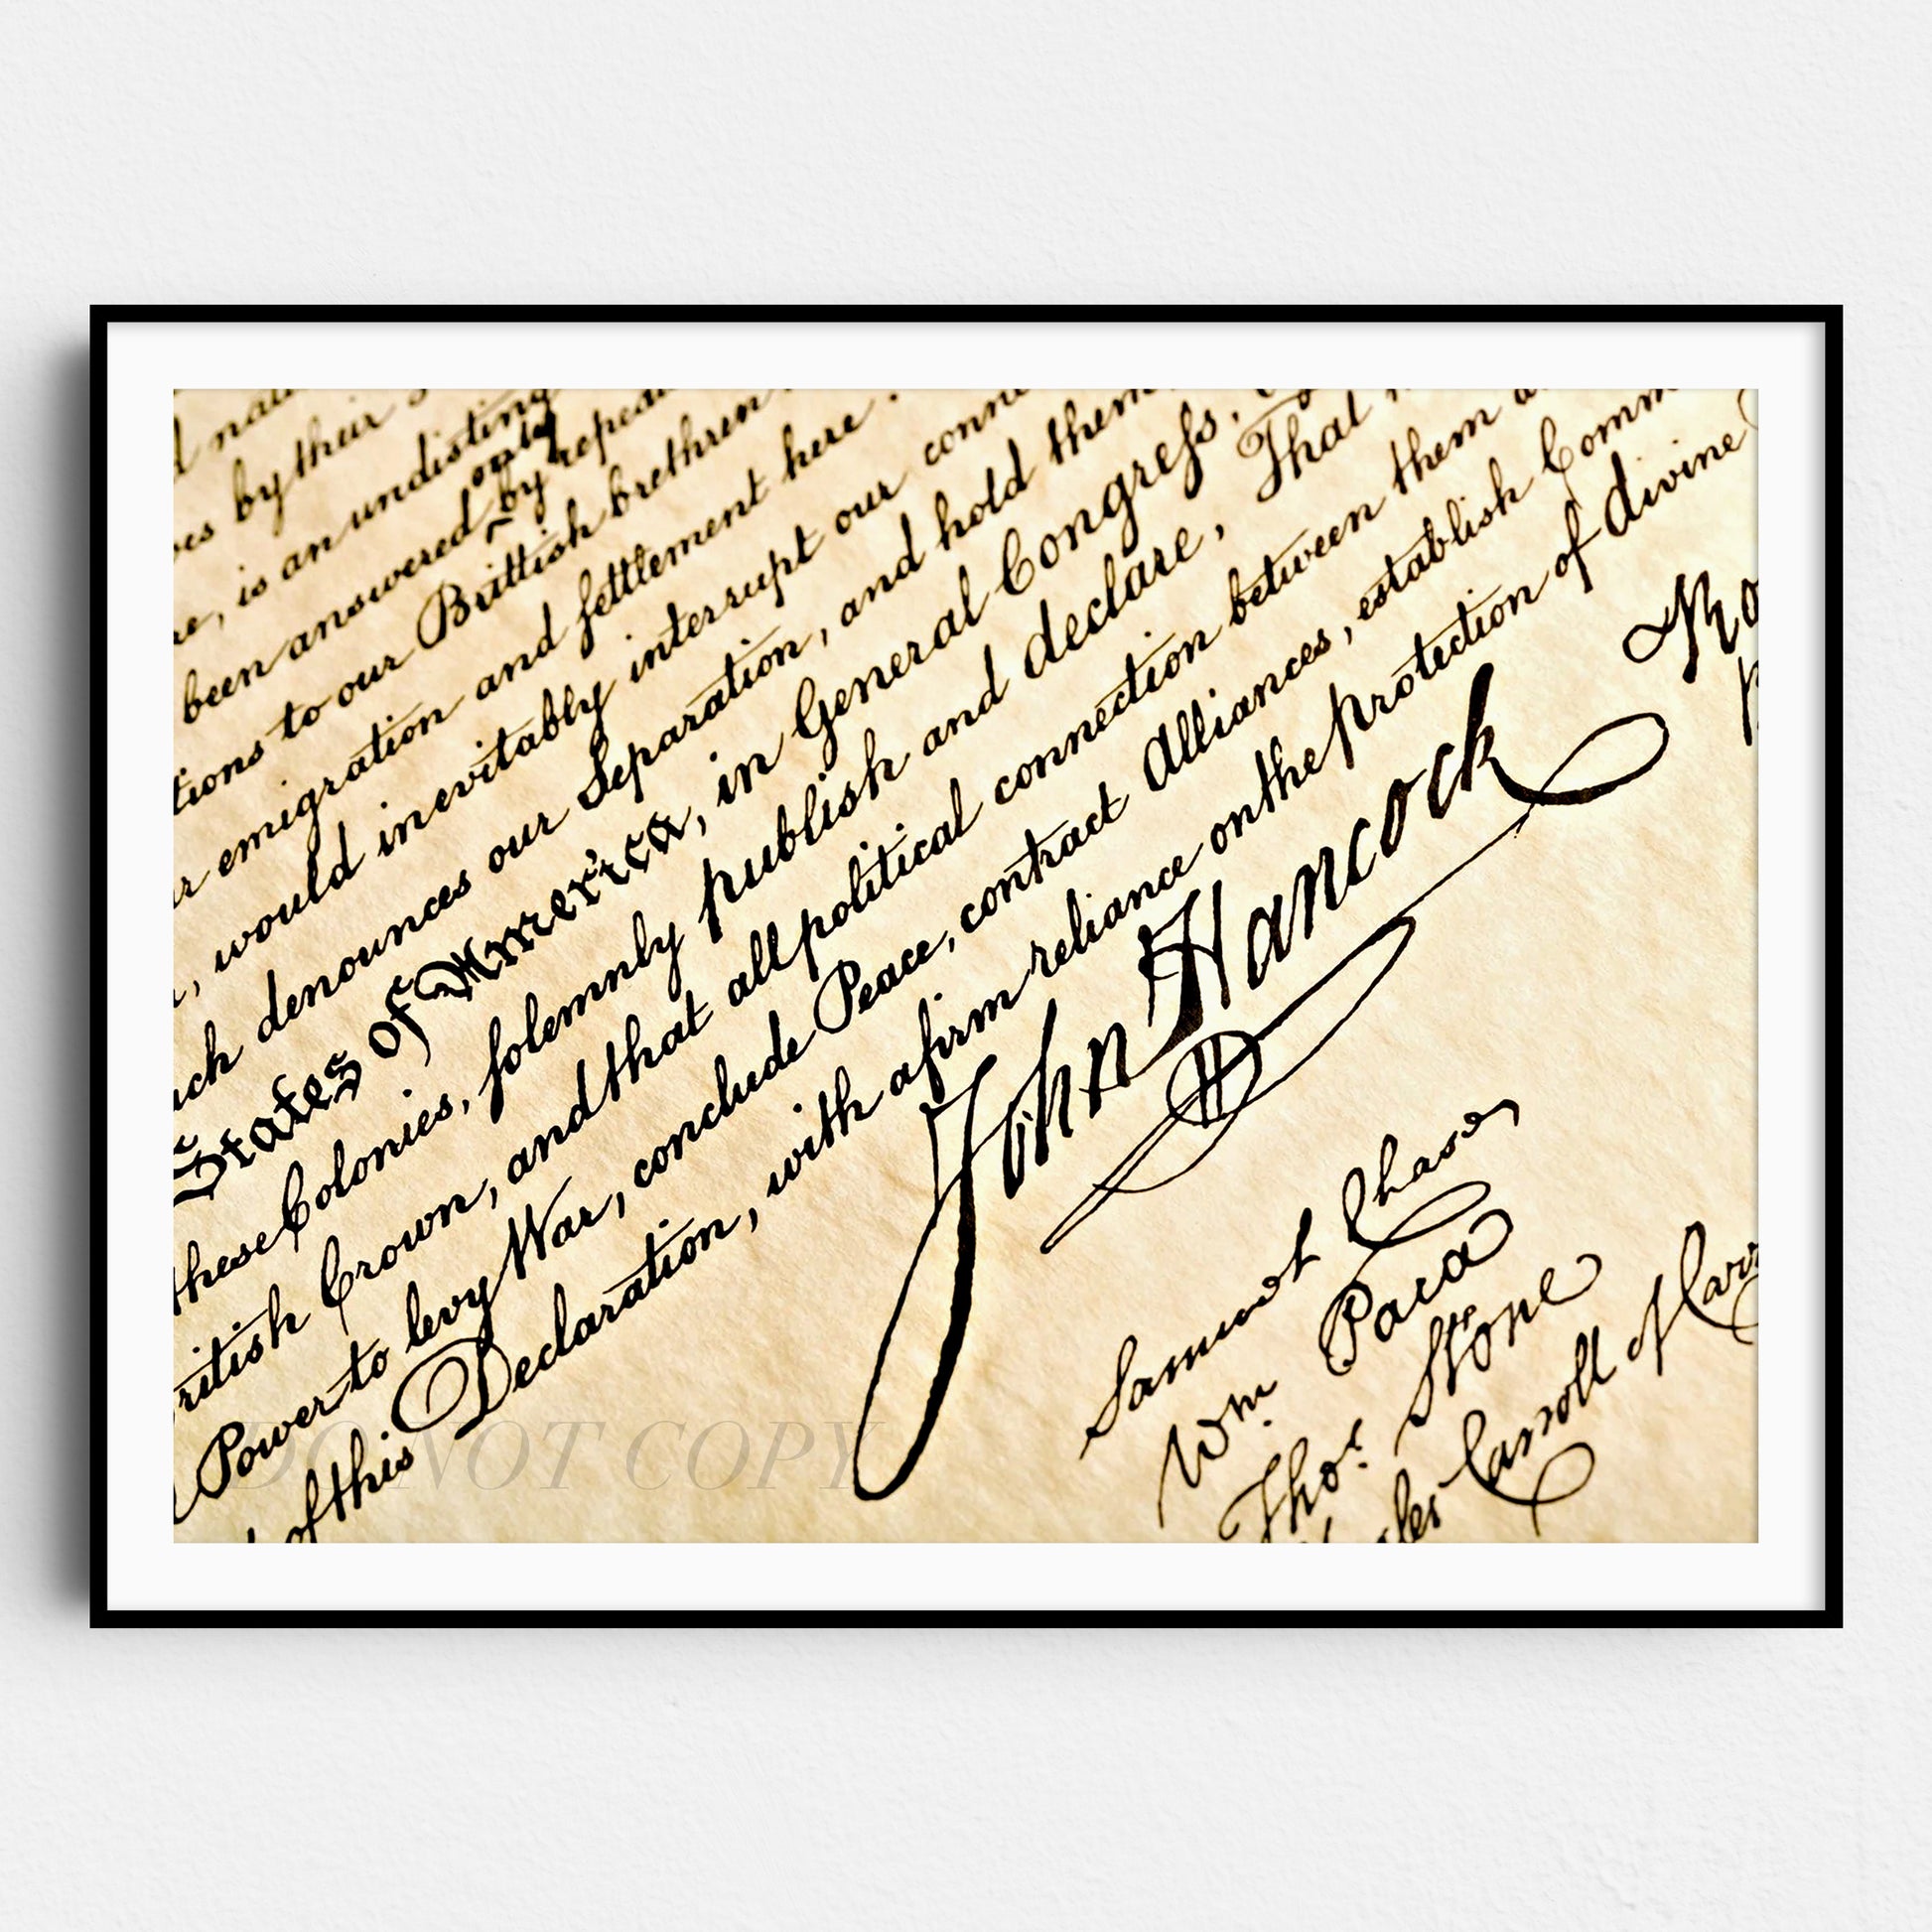 by their
is an undisting
been answered only by repea
tions to our Brittish brethren
emigration and settlement here.
would inevitably interrupt our conne
denounces our Separation, and hold them
States of America, in General Congress,
these Colonies, solemnly publish and declare, That
ritish Crown, and that all political connection between them
Power to levy War, conclude Peace, contract Alliances, establish Comm
of this Declaration, with a firm reliance on the protection of divine
John Hancock
Samuel Chase
Wm. Paca
Thos. Stone
Carroll of Carr
DO NOT COPY